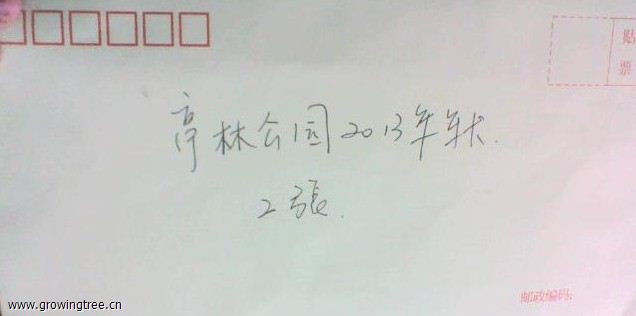 贴
票
亭林公园2013年年卡.
2張.
邮政编码:
www.growingtree.cn